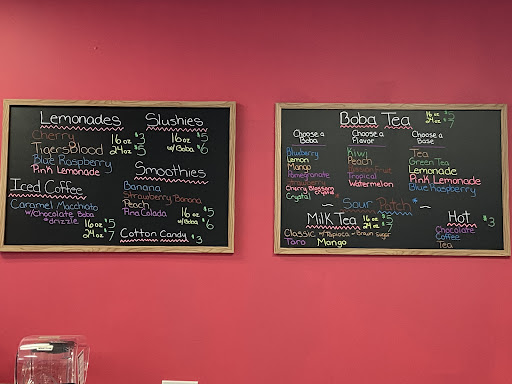 Lemonades
Cherry
Tigers Blood
Blue Raspberry
Pink Lemonade
16 oz $3
24 oz $5
Iced Coffee
Caramel Macchiato
w/Chocolate Boba
*drizzle
16 oz $5
24 oz $7
Slushies
16 oz $5
w/Boba $6
Smoothies
Banana
Strawberry Banana
Peach
Pina Colada
16 oz $5
w/Boba $6
Cotton Candy $3
Boba Tea
16 oz $5
24 oz $7
Choose a Boba
Blueberry
Lemon
Mango
Pomegranate
Cherry Blossom
Crystal
Crystal
Choose a Flavor
Kiwi
Peach
Passionfruit
Tropical
Watermelon
Choose a Base
Tea
Green Tea
Lemonade
Pink Lemonade
Blue Raspberry
~ Sour Patch* ~
Milk Tea
16 oz $5
24 oz $7
Classic w/Tapioca + Brown Sugar
Taro Mango
Hot $3
Chocolate
Coffee
Tea